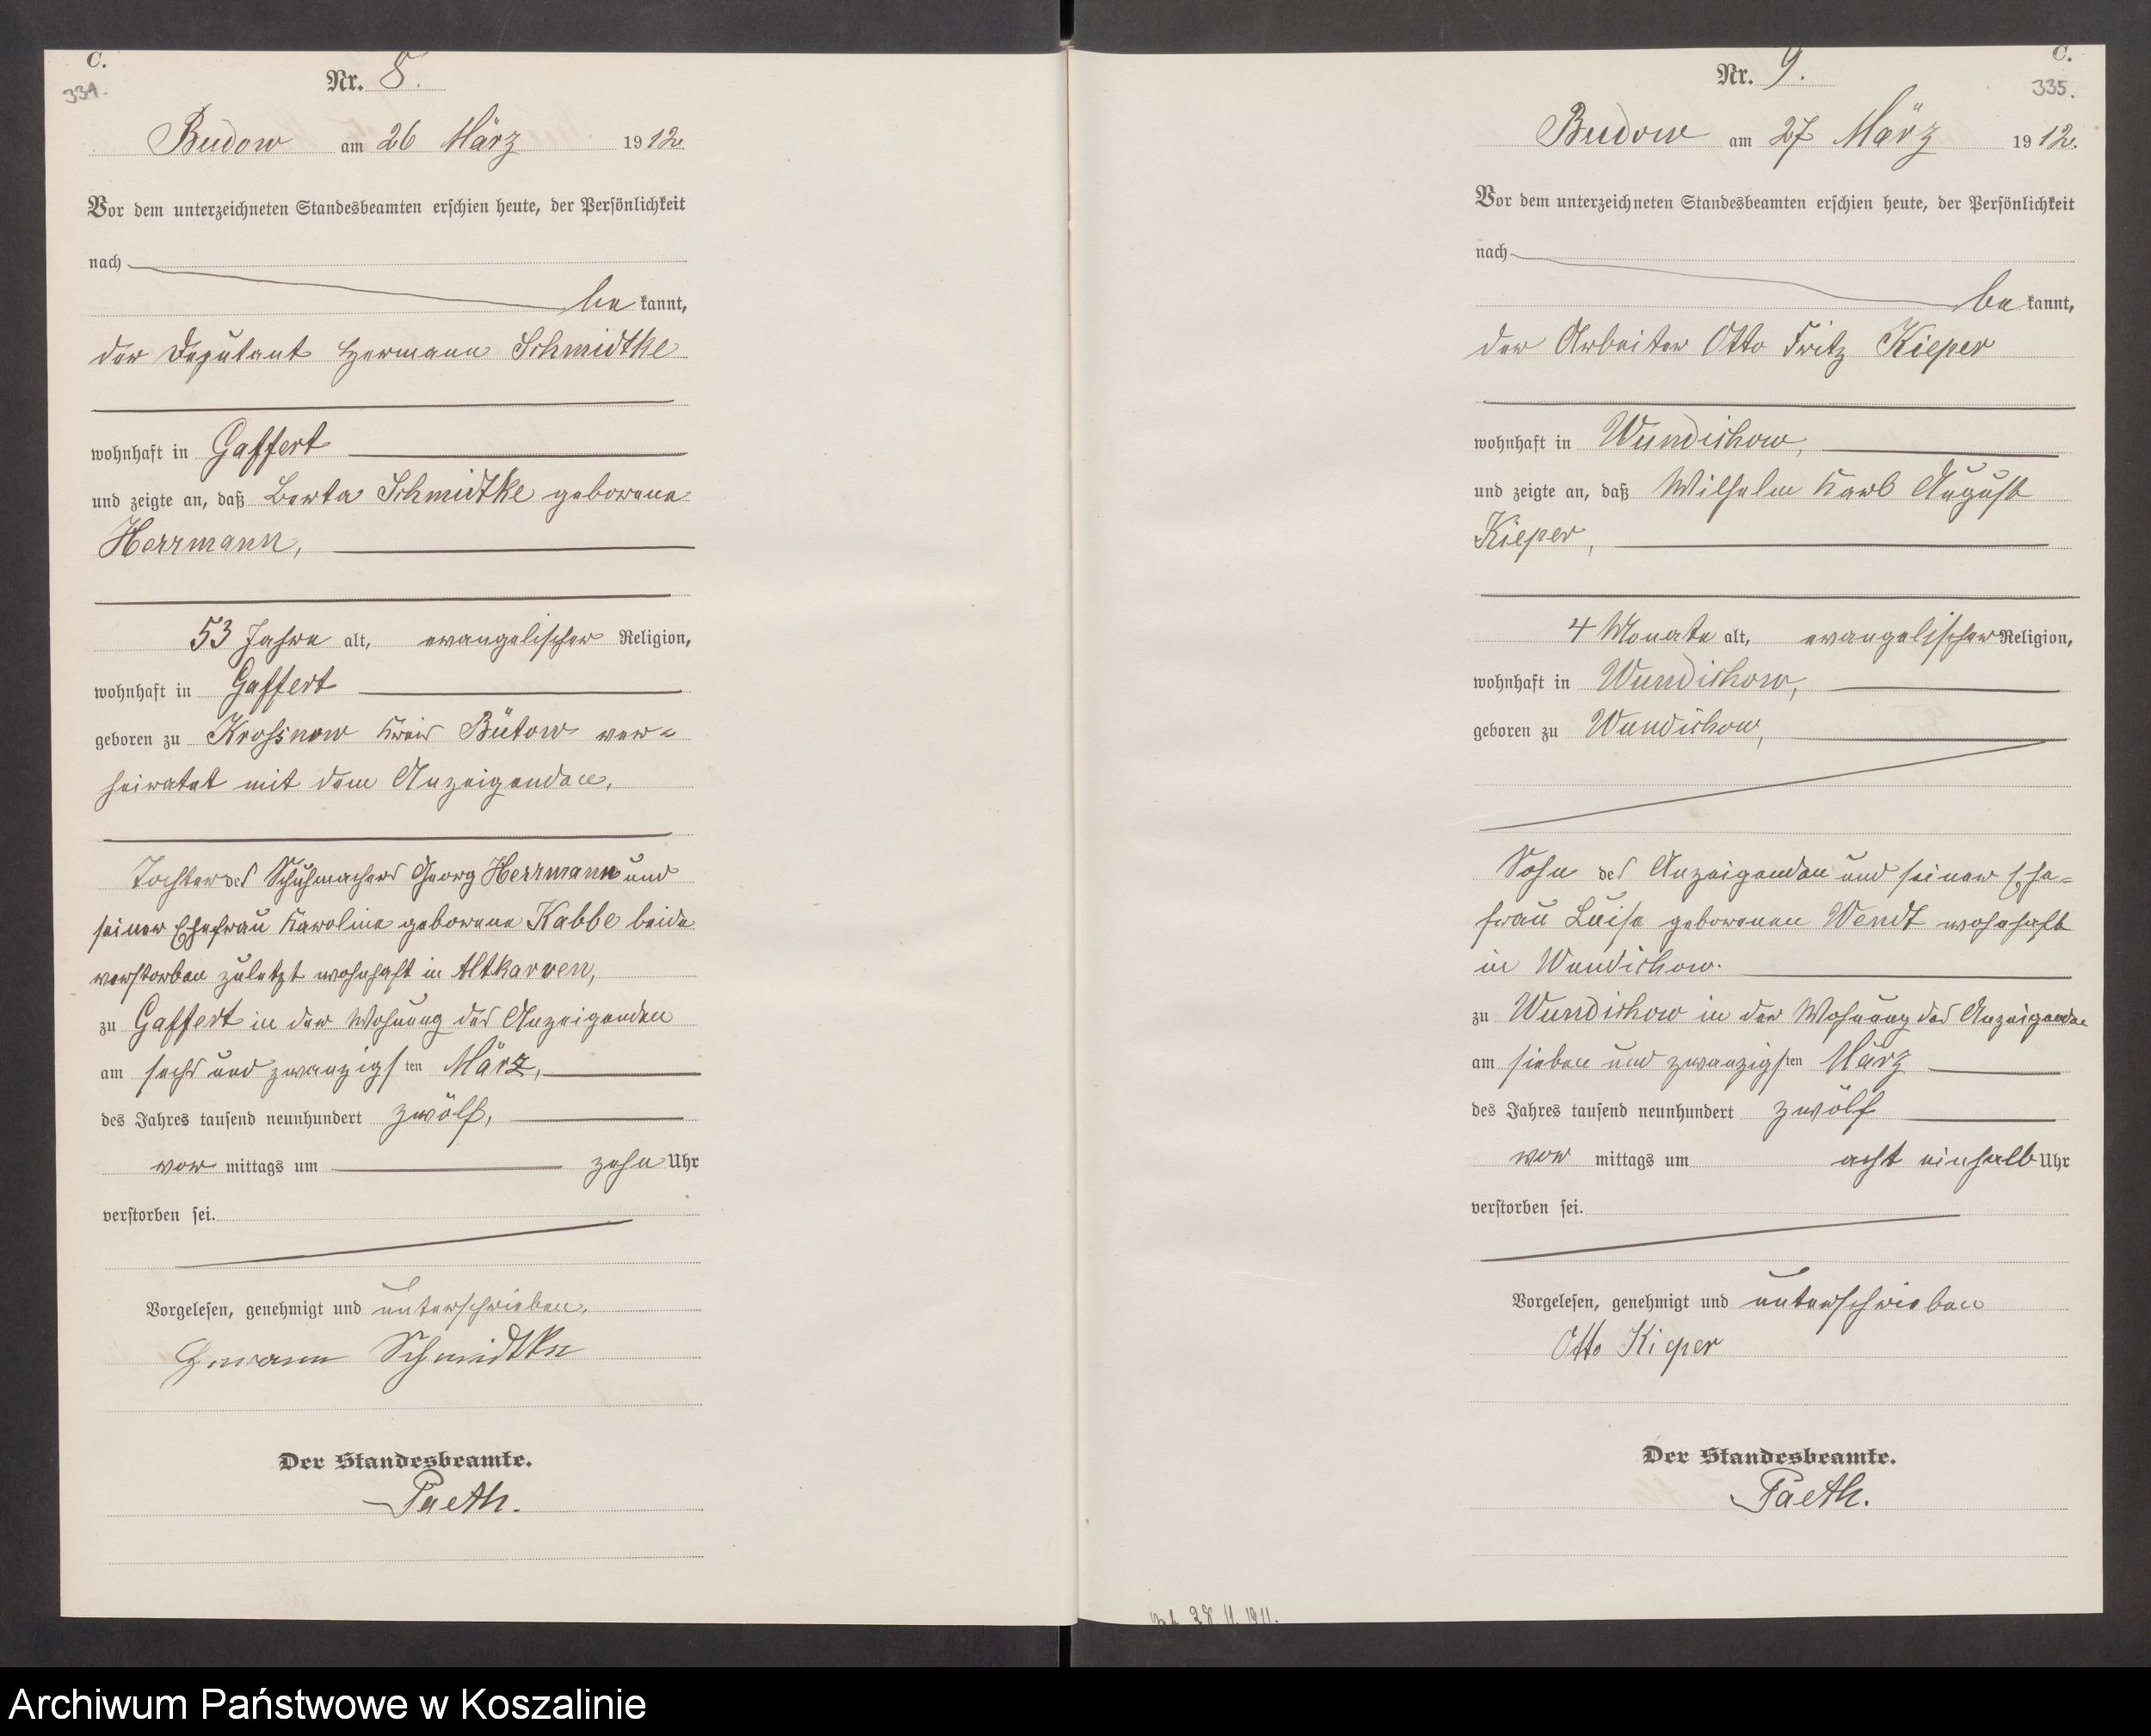 C.
334.
Nr. 8.
Budow am 26 März 1912.
Vor dem unterzeichneten Standesbeamten erschien heute, der Persönlichkeit
nach
be kannt,
der Deputant Hermann Schmidtke
wohnhaft in Gaffert
und zeigte an, daß Berta Schmidtke geborene
Herrmann,
53 Jahre alt, evangelischer Religion,
wohnhaft in Gaffert
geboren zu Krossnow Kreis Bütow ver=
heiratet mit dem Anzeigenden,
Tochter des Schuhmachers Georg Herrmann und
seiner Ehefrau Karoline geborene Kabbe beide
verstorben zuletzt wohnhaft in Altkarven,
zu Gaffert in der Wohnung des Anzeigenden
am sechs und zwanzigsten März,
des Jahres tausend neunhundert zwölf,
vor mittags um zehn Uhr
verstorben sei.
Vorgelesen, genehmigt und unterschrieben.
Hermann Schmidtke
Der Standesbeamte.
Paeth.
C.
335.
Nr. 9.
Budow am 27 März 1912.
Vor dem unterzeichneten Standesbeamten erschien heute, der Persönlichkeit
nach
be kannt,
der Arbeiter Otto Fritz Kieper
wohnhaft in Wundichow,
und zeigte an, daß Wilhelm Karl August
Kieper,
4 Monate alt, evangelischer Religion,
wohnhaft in Wundichow,
geboren zu Wundichow,
Sohn des Anzeigenden und seiner Ehe=
frau Luise geborenen Wendt wohnhaft
in Wundichow.
zu Wundichow in der Wohnung des Anzeigenden
am sieben und zwanzigsten März
des Jahres tausend neunhundert zwölf
vor mittags um acht einhalb Uhr
verstorben sei.
Vorgelesen, genehmigt und unterschrieben
Otto Kieper
Der Standesbeamte.
Paeth.
28.11.1911.
Archiwum Państwowe w Koszalinie